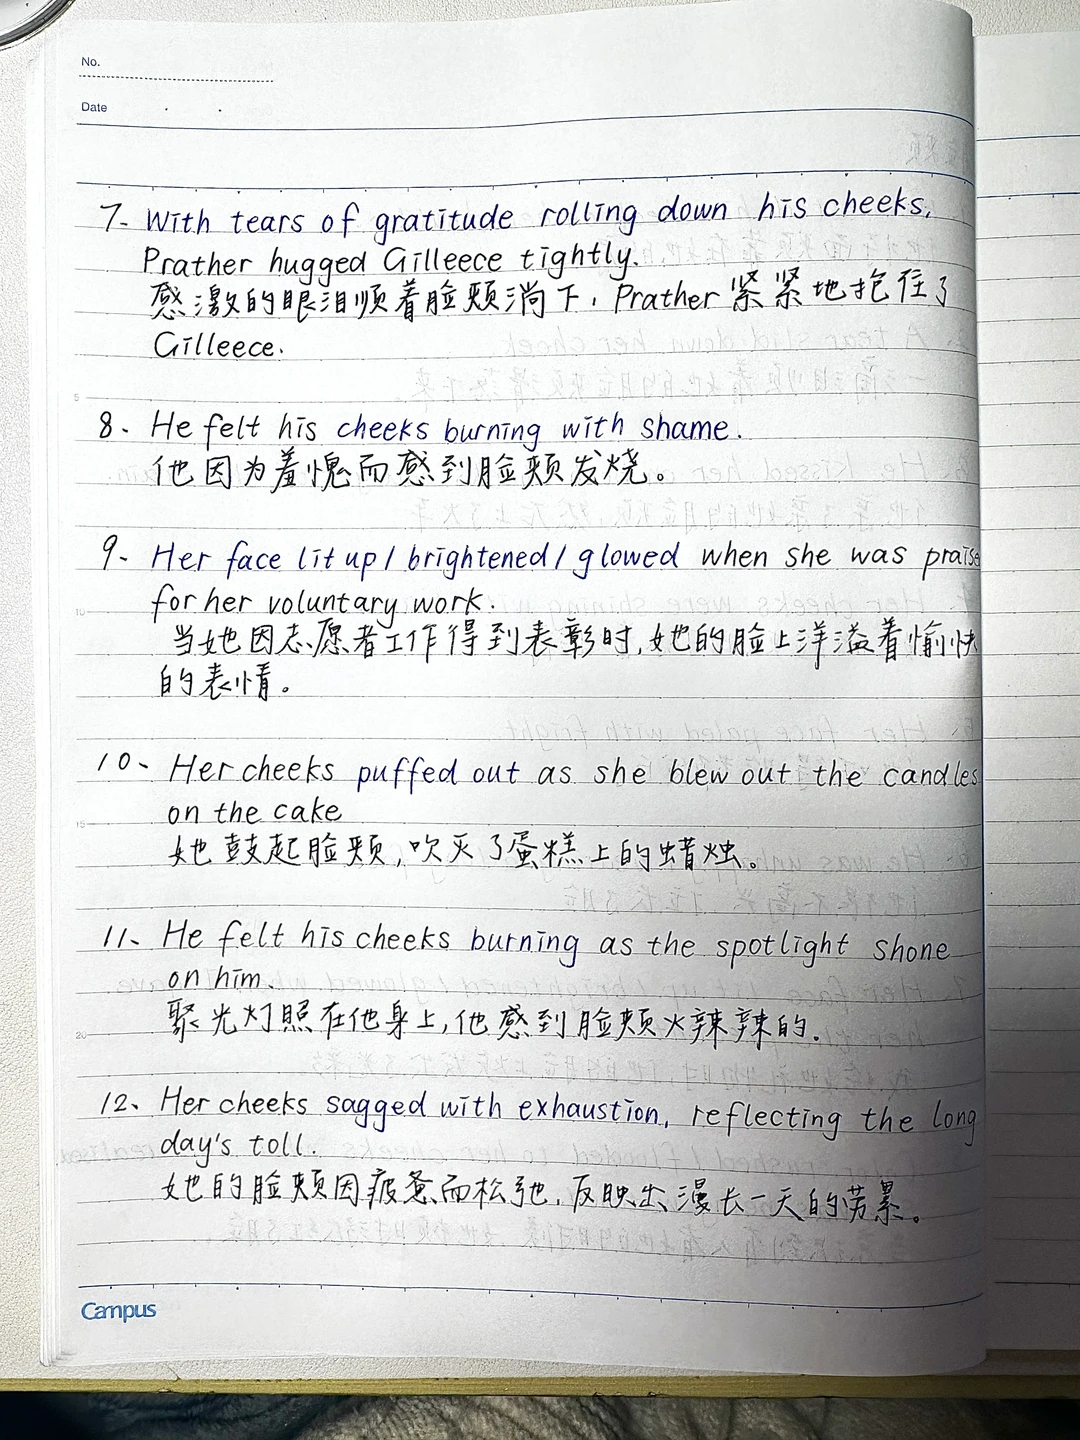 No.
Date
7. With tears of gratitude rolling down his cheeks,
Prather hugged Gilleece tightly.
感激的眼泪顺着脸颊淌下，Prather 紧紧地抱住了
Gilleece.
5
8. He felt his cheeks burning with shame.
他因为羞愧而感到脸颊发烧。
9. Her face lit up / brightened / glowed when she was praise
10
for her voluntary work.
当她因志愿者工作得到表彰时，她的脸上洋溢着愉快
的表情。
10、Her cheeks puffed out as she blew out the candles
on the cake
15
她鼓起脸颊，吹灭了蛋糕上的蜡烛。
11、He felt his cheeks burning as the spotlight shone
on him.
聚光灯照在他身上，他感到脸颊火辣辣的.
20
12、Her cheeks sagged with exhaustion, reflecting the long
day's toll.
她的脸颊因疲惫而松弛，反映出漫长一天的劳累。
Campus